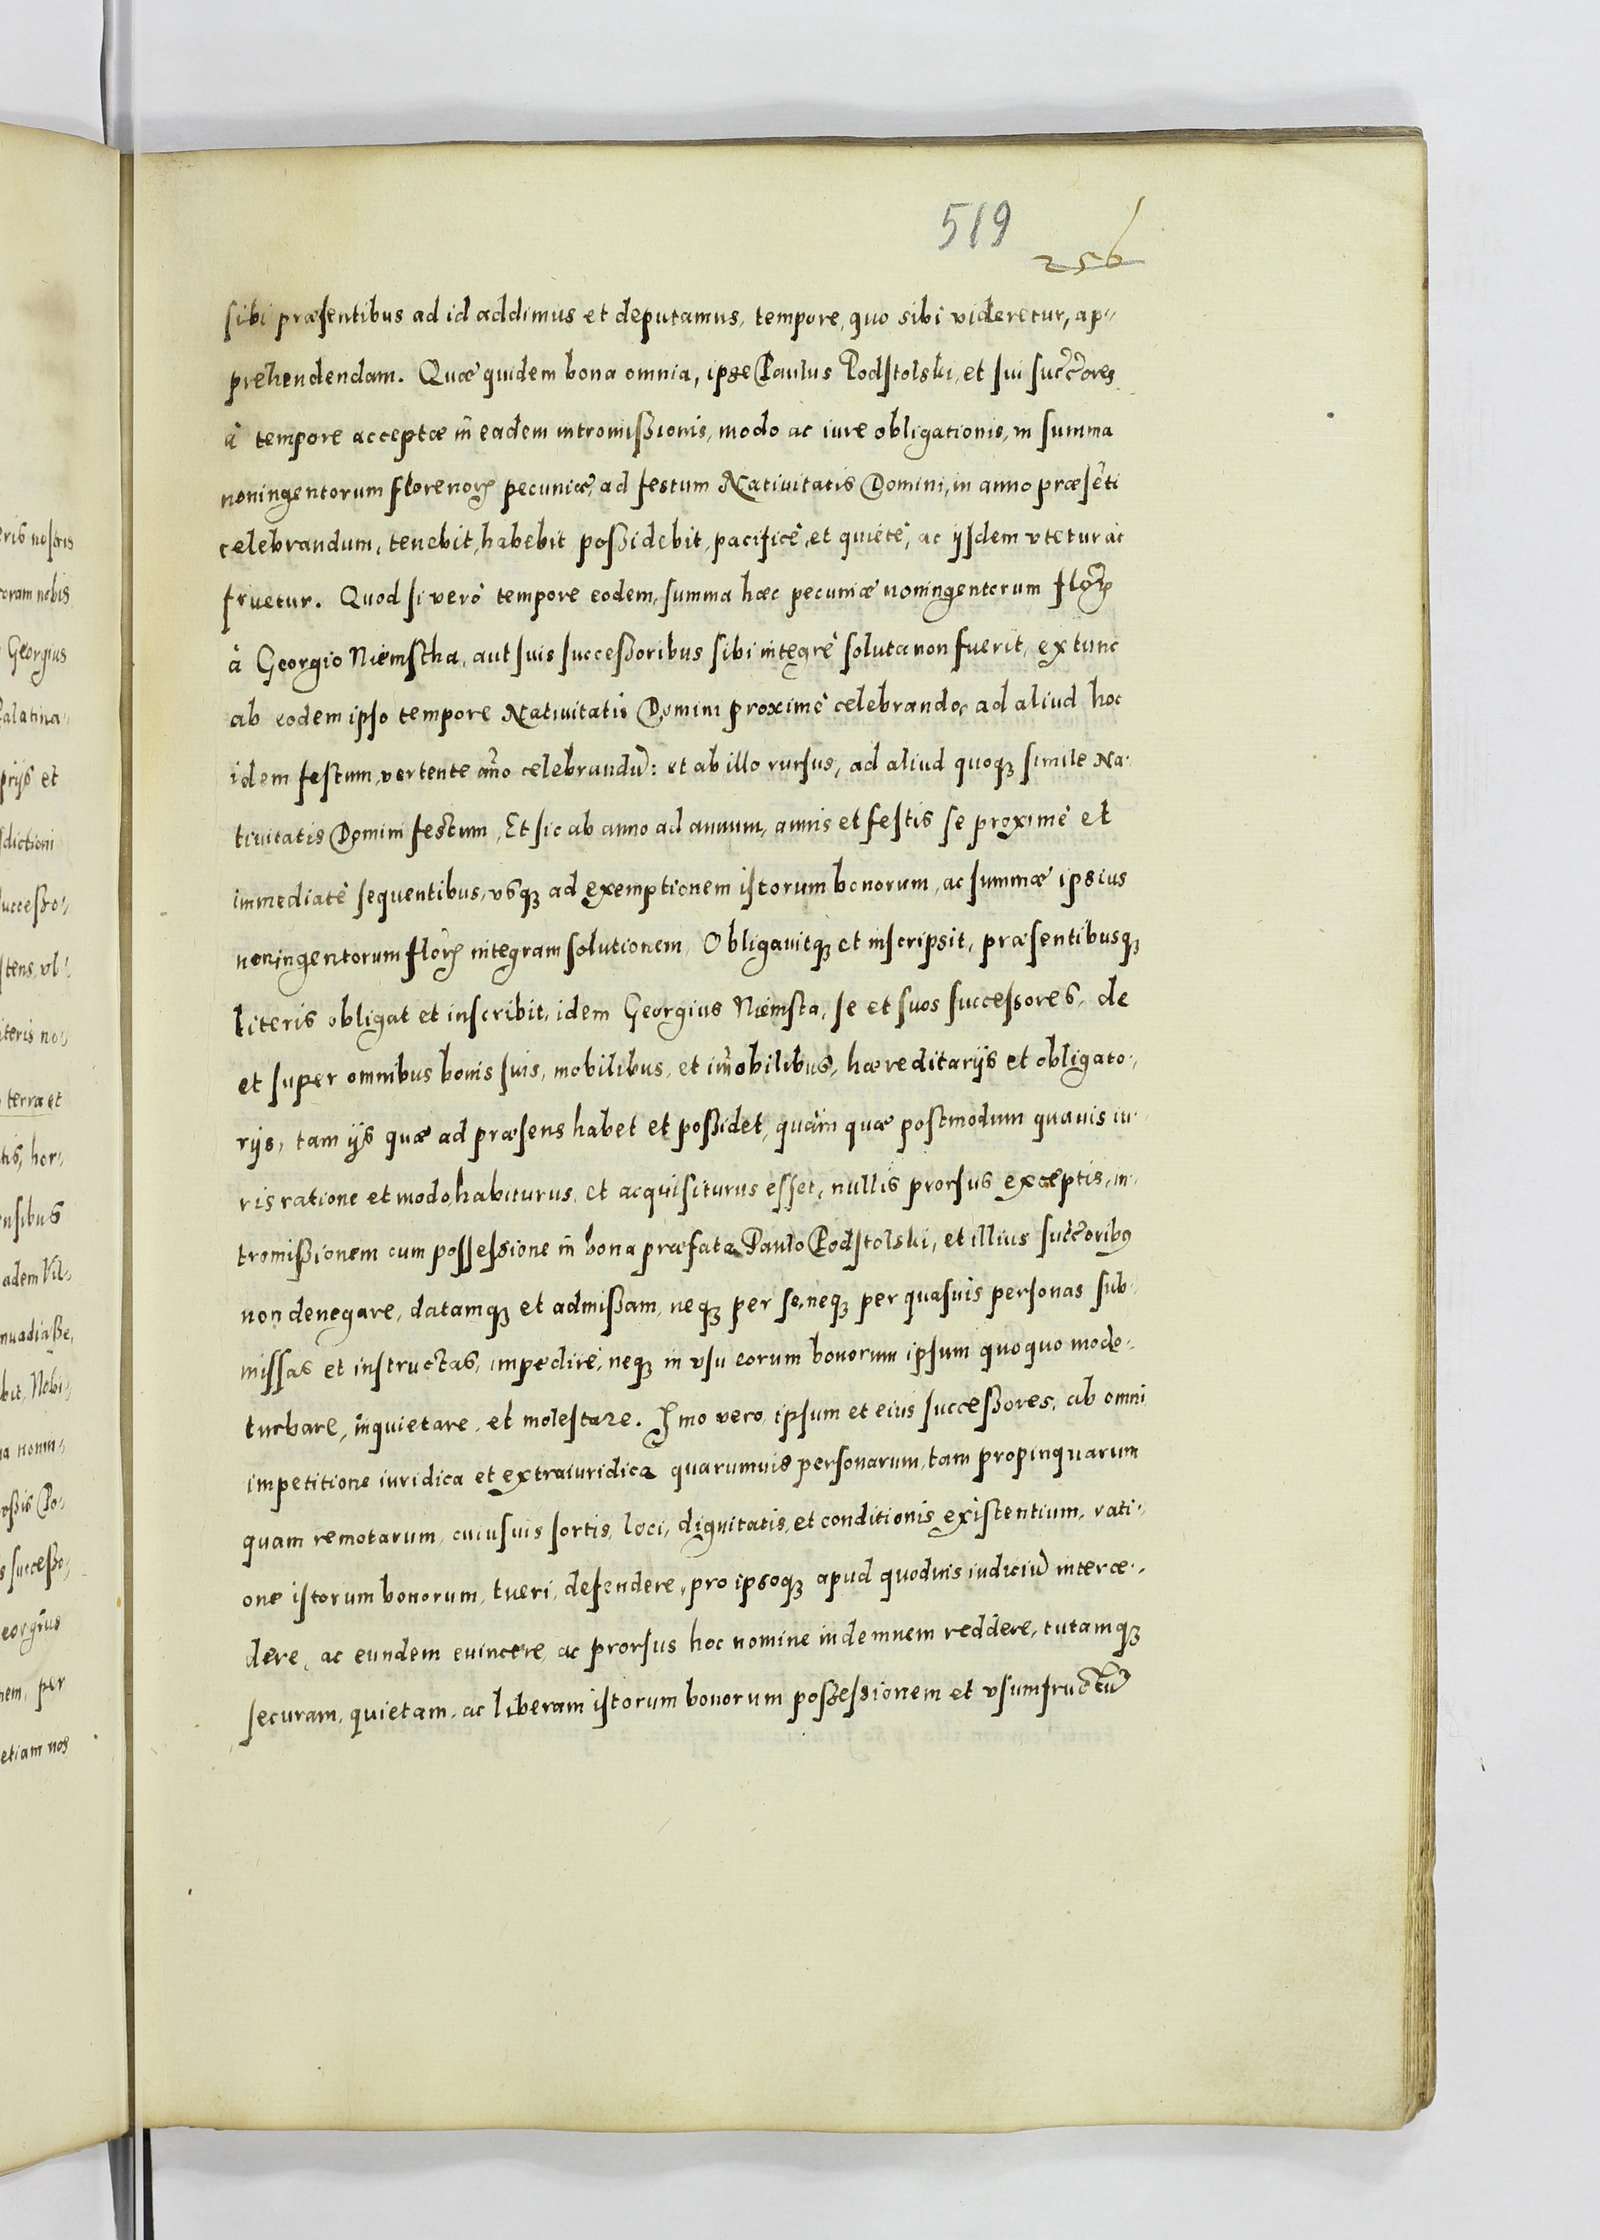 519
256
sibi præsentibus ad id addimus et deputamus, tempore, quo sibi videretur, ap-
prehendendam. Quæ quidem bona omnia, ipse Paulus Podstolski, et sui succ̃ores
à tempore acceptæ in eadem intromissionis, modo ac iure obligationis, in summa
noningentorum florenorꝝ pecuniæ, ad festum Nativitatis Domini, in anno præsẽti
celebrandum, tenebit, habebit possidebit, pacificè, et quietè, ac ijsdem vtetur ac
fruetur. Quod si verò tempore eodem, summa hæc pecuniæ noningentorum florꝝ
à Georgio Niemstha, aut suis successoribus sibi integrè soluta non fuerit, ex tunc
ab eodem ipso tempore Nativitatis Domini proximè celebrando, ad aliud hoc
idem festum, vertente anño celebrandũ: et ab illo rursus, ad aliud quoqꝫ simile Na-
tiuitatis Domini festum, Et sic ab anno ad annum, annis et festis se proximè et
immediatè sequentibus, vsqꝫ ad exemptionem istorum bonorum, ac summæ ipsius
noningentorum florꝝ integram solutionem, Obligauitqꝫ et inscripsit, præsentibusqꝫ
literis obligat et inscribit, idem Georgius Niemsta, se et suos successores, de
et super omnibus bonis suis, mobilibus, et im̃obilibus, hæreditarijs et obligato-
rijs, tam ijs quæ ad præsens habet et possidet, quàm quæ postmodum quauis iu-
ris ratione et modo, habiturus, et acquisiturus esset, nullis prorsus exceptis, in-
tromissionem cum possessione in bona præfata Paulo Podstolski, et illius succ̃oribꝰ
non denegare, datamqꝫ et admissam, neqꝫ per se, neqꝫ per quasuis personas sub-
missas et instructas, impedire, neqꝫ in vsu eorum bonorum ipsum quoquo modo
turbare, inquietare, et molestare. Ymo vero, ipsum et eius successores, ab omni
impetitione iuridica et extraiuridica quarumuis personarum, tam propinquarum
quam remotarum, cuiusuis sortis, loci, dignitatis, et conditionis existentium, rati-
one istorum bonorum, tueri, defendere, pro ipsoqꝫ apud quoduis iudiciũ interce-
dere, ac eundem euincere, ac prorsus hoc nomine indemnem reddere, tutamqꝫ
securam, quietam, ac liberam istorum bonorum possessionem et vsumfructũ